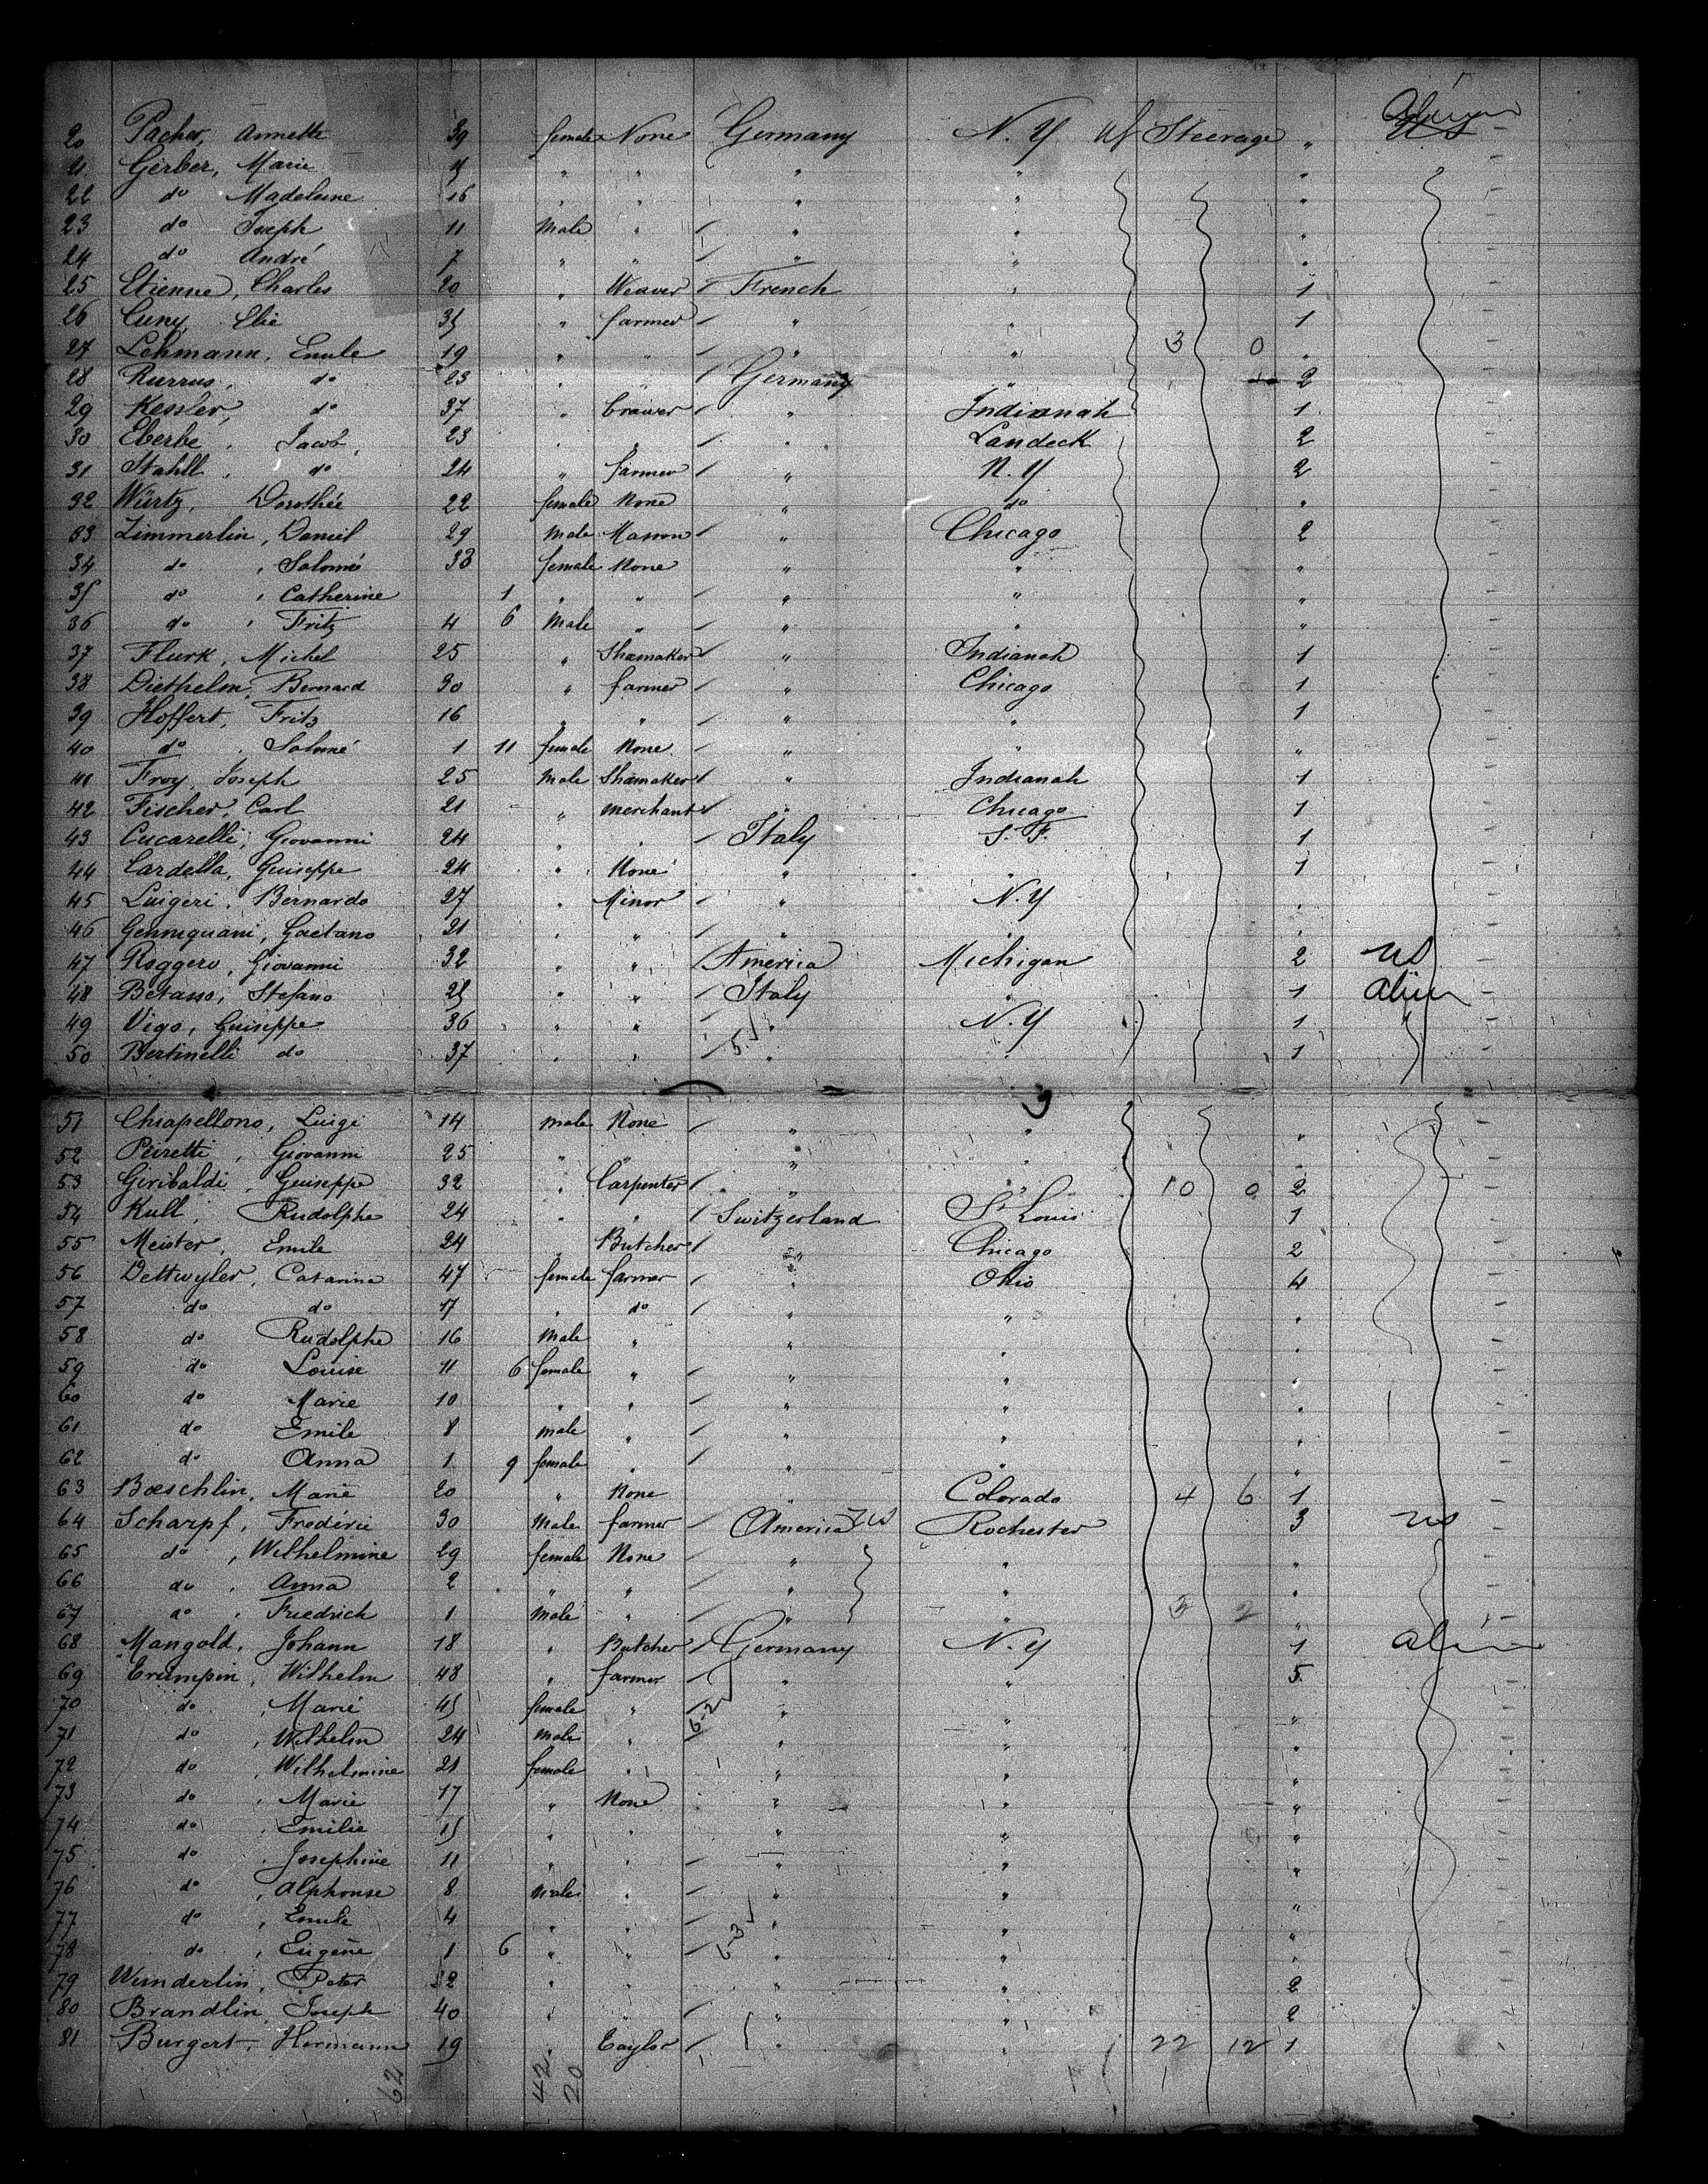 20 Pacher, Annette 39 female None Germany N.Y US Steerage " Alien
21 Gerber, Marie " " " " "
22 do Madeleine 16 " " " " "
23 do Joseph 11 Male " " " "
24 do André 7 " " " " "
25 Etienne, Charles 20 " Weaver French " 1
26 Cuny, Elie 35 " farmer " " 1
27 Lehmann, Emile 19 " " " " 3 0 "
28 Rurrus, do 23 " " Germany " 2
29 Kessler, do 37 " brawer " Indianah 1
30 Eberhe, Jacob, 23 " " " Landeck 2
31 Stahll, do 24 " farmer " N.Y 2
32 Würtz, Dorothée 22 female None " do "
33 Zimmerlin, Daniel 29 Male Masson " Chicago 2
34 do, Salomé 38 female None " " "
35 do, Catherine 1 " " " " "
36 do, Fritz 4 6 Male " " " "
37 Flurk, Michel 25 " Shamaker " Indianah 1
38 Diethelm, Bernard 30 " farmer " Chicago 1
39 Hoffert, Fritz 16 " " " " 1
40 do, Salomé 1 11 female None " " "
41 Froy, Joseph 25 Male Shamaker " Indianah 1
42 Fischer, Carl 21 " merchant " Chicago 1
43 Cucarelli, Giovanni 24 " " Italy S.F. 1
44 Cardella, Guiseppe 24 " None " " 1
45 Luigeri, Bernardo 27 " Minor " N.Y "
46 Gaetano 21 " " " " "
47 Roggero, Giovanni 32 " " America Michigan 2 US
48 Betasso, Stefano 25 " " Italy " 1 Alien
49 Vigo, Guiseppe 36 " " " N.Y 1
50 Bertinelli do 37 " " " " 1
51 Chiapellono, Luigi 14 male None " " "
52 Peiretti, Giovanni 25 " " " " "
53 Giribaldi, Guiseppe 32 " Carpenter " " 10 0 2
54 Kull, Rudolphe 24 " " Switzerland St Louis 1
55 Meister, Emile 24 " Butcher " Chicago 2
56 Dettwyler, Catarina 47 female farmer " Ohio 4
57 do do 17 " do " " "
58 do Rudolphe 16 Male " " " "
59 do Louise 11 6 female " " " "
60 do Marie 10 " " " " "
61 do Emile 8 male " " " "
62 do Anna 1 9 female " " " "
63 Bœschlin, Marie 20 " None " Colorado 4 6 1
64 Scharpf, Frédéric 30 Male farmer America US Rochester 3 US
65 do, Wilhelmine 29 female None " " "
66 do, Anna 2 " " " " "
67 do, Friedrich 1 Male " " " 3 2 "
68 Mangold, Johann 18 " Butcher Germany N.Y 1 alien
69 Crumpin, Wilhelm 48 " farmer " " 5
70 do, Marie 45 female " " " "
71 do, Wilhelm 24 Male " " " "
72 do, Wilhelmine 21 female " " " "
73 do, Marie 17 " None " " "
74 do, Emilie 15 " " " " "
75 do, Josephine 11 " " " " "
76 do, Alphonse 8 Male " " " "
77 do, Emile 4 " " " " "
78 do, Eugène 1 6 " " " " "
79 Wunderlin, Peter 22 " " " " 2
80 Brandlin, Joseph 40 " " " " 2
81 Burgert, Hermann 19 " Taylor " " 22 12 1
62 42 20